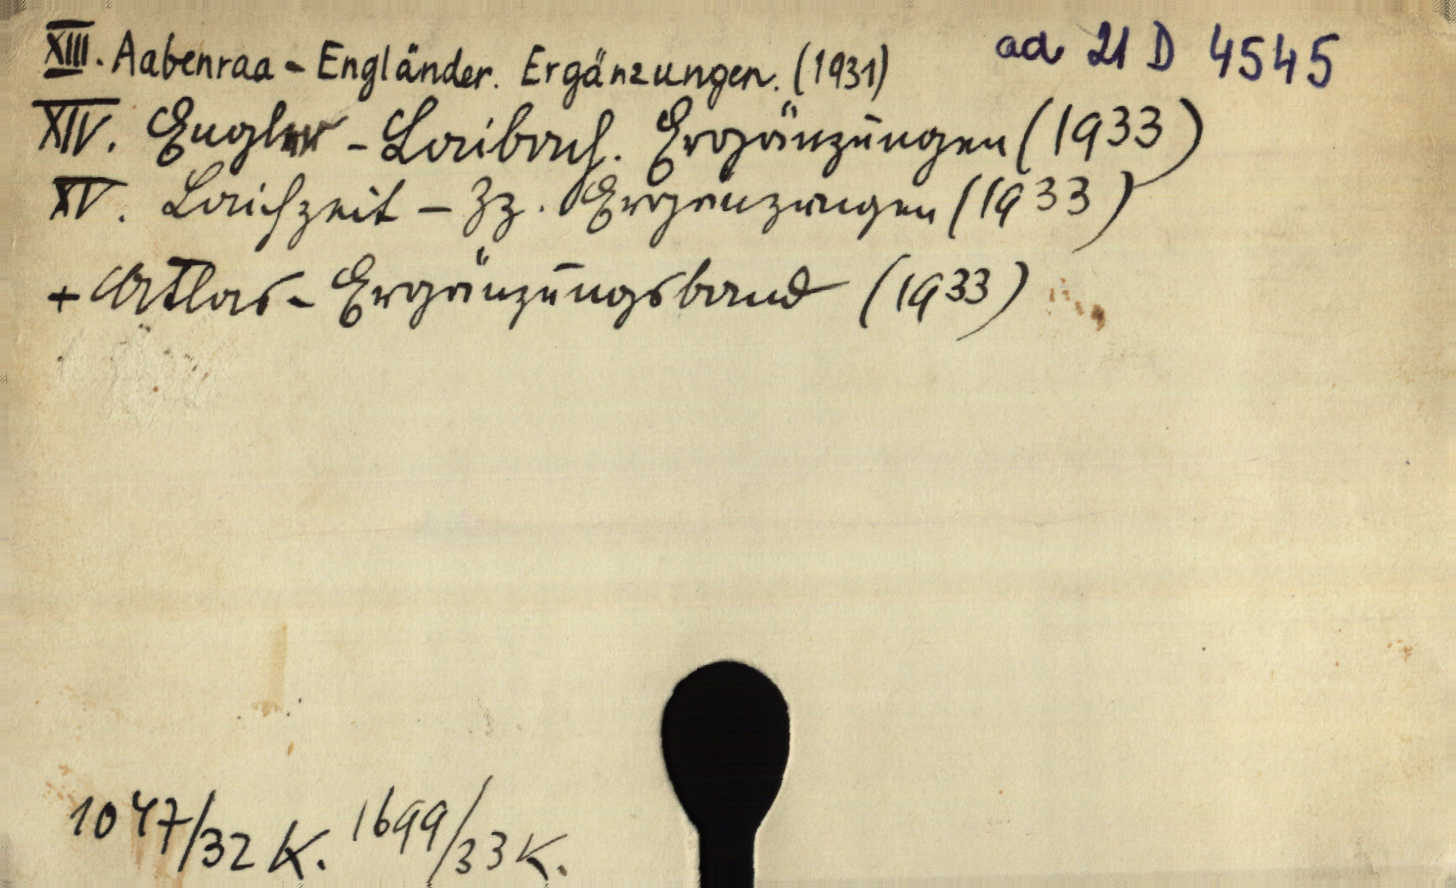 ad 21 D 4545
XIII. Aabenraa - Engländer. Ergänzungen. (1931)
XIV. Engler - Laibach. Ergänzungen (1933)
XV. Laichzeit - Zz. Ergänzungen (1933)
+ Atlas - Ergänzungsband (1933)
1047/32 K. 1699/33 K.